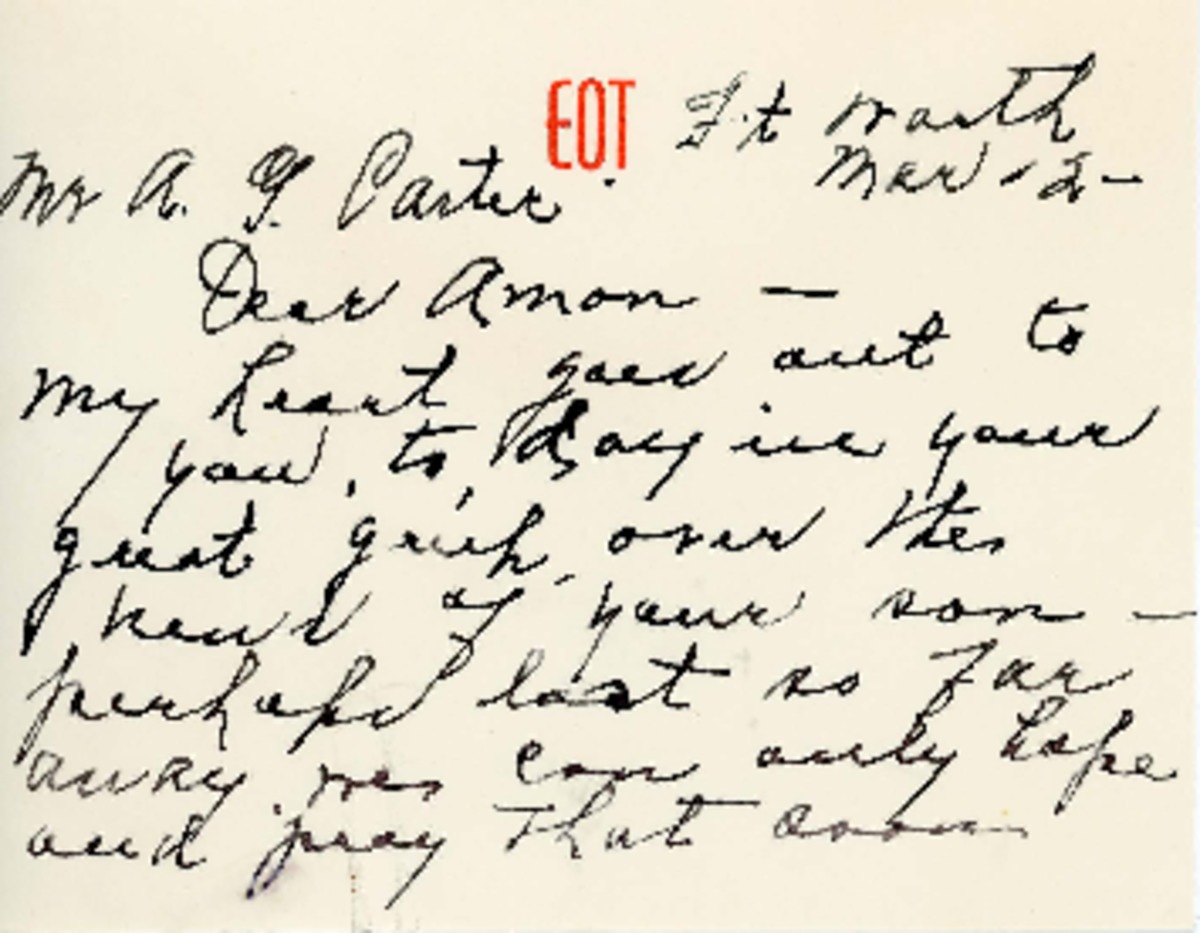 EOT Ft Worth
Mar - 2 -
Mr A. G. Carter.
Dear Amon —
My heart goes out to
you, to, day in your
great grief, over the
news of your son —
perhaps lost so far
away. We can only hope
and pray that soon